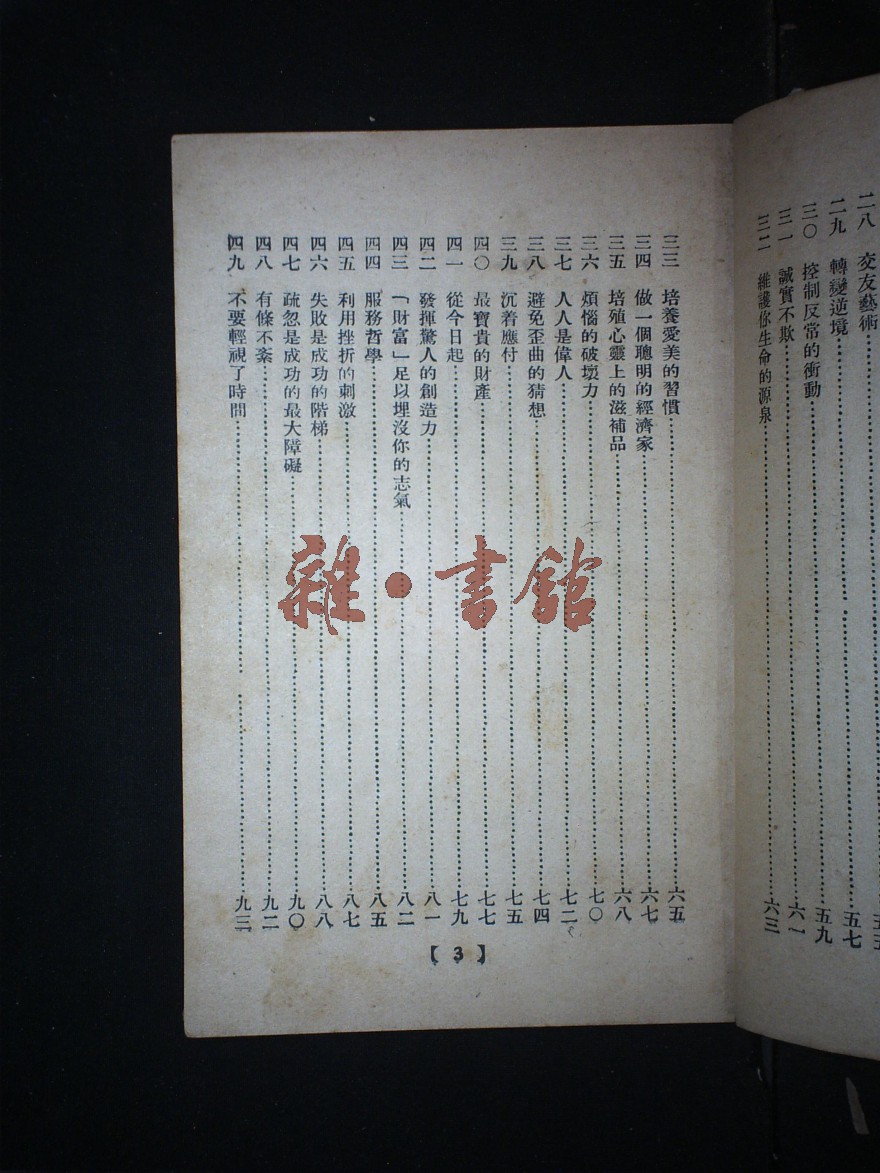 二八 交友藝術 五五
二九 轉變逆境 五七
三〇 控制反常的衝動 五九
三一 誠實不欺 六一
三二 維護你生命的源泉 六三
三三 培養愛美的習慣 六五
三四 做一個聰明的經濟家 六七
三五 培殖心靈上的滋補品 六八
三六 煩惱的破壞力 七〇
三七 人人是偉人 七二
三八 避免歪曲的猜想 七四
三九 沉着應付 七五
四〇 最寶貴的財產 七七
四一 從今日起 七九
四二 發揮驚人的創造力 八一
四三 「財富」足以埋沒你的志氣 八二
四四 服務哲學 八五
四五 利用挫折的刺激 八七
四六 失敗是成功的階梯 八八
四七 疏忽是成功的最大障礙 九〇
四八 有條不紊 九二
四九 不要輕視了時間 九三
【3】
雜·書館